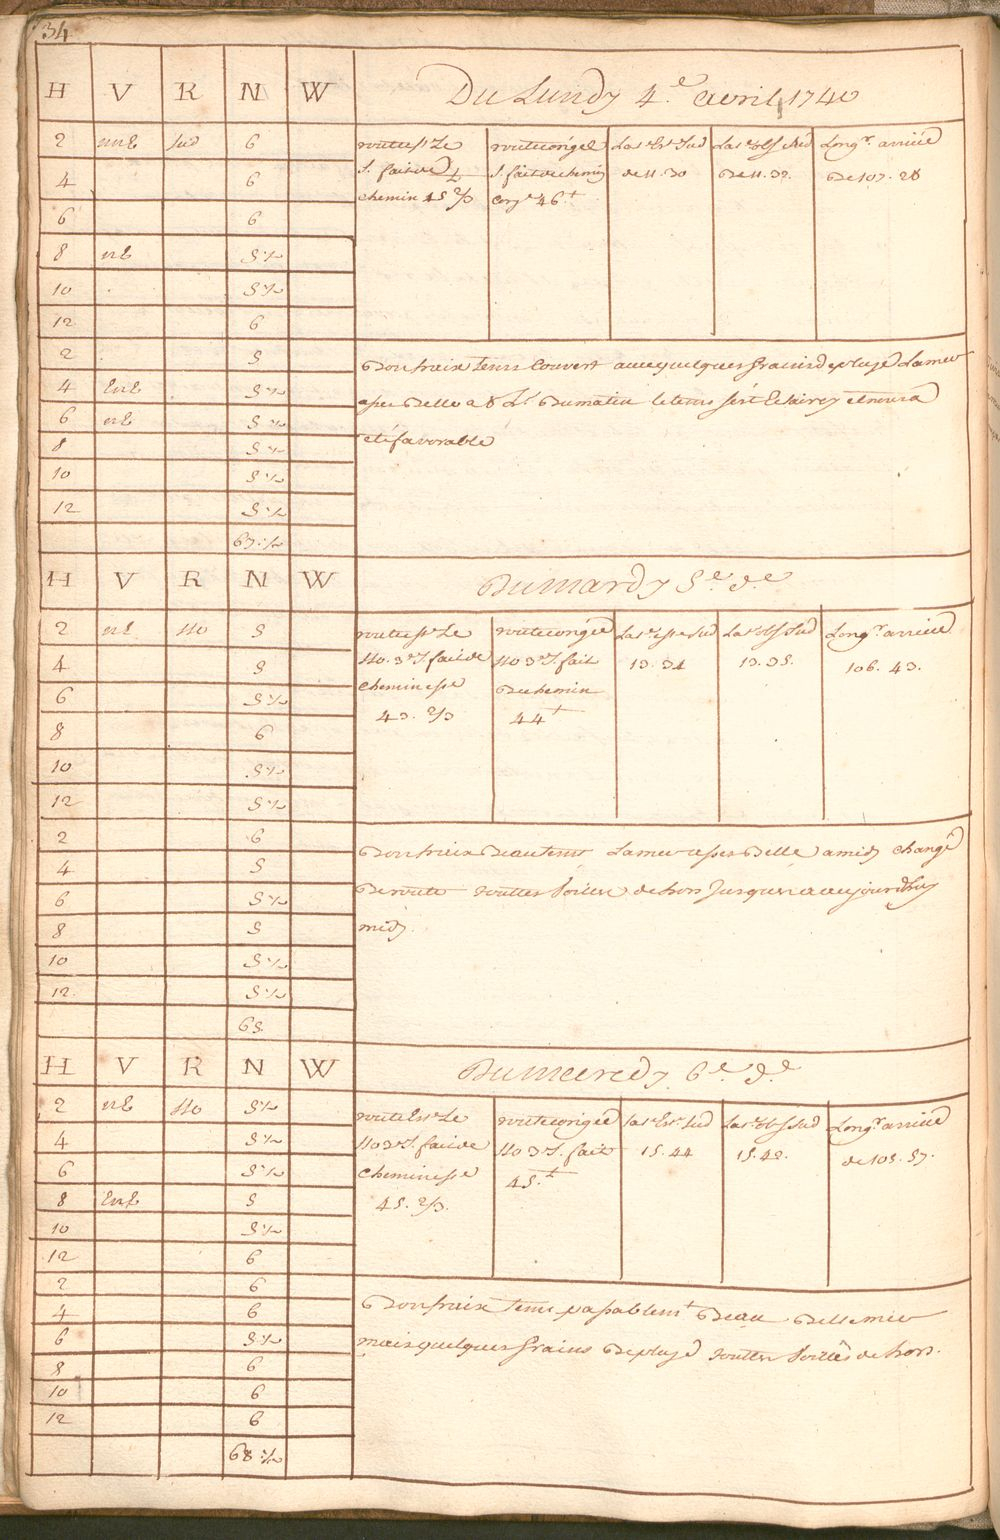 34
H V R N W Du Lundy 4.e avril 1740
2 nnE sud 6
4 6
6 6
8 nE 5 ½
10 5 ½
12 6
2 5
4 EnE 5 ½
6 nE 5 ½
8 5 ½
10 5 ½
12 5 ½
67 ½
route est.e Le
S. fait de
chemin 45 2/3
route corigée
S. fait de chemin
corg.e 46 t
Lat.e Est.e Sud
de 11. 30
Lat.e obs Sud
de 11. 32
Long.r arrivée
de 107. 28
Bon fraix tems Couvert avec quelques Grains de pluye La mer
asses Belle a 8 h.s Du matin le tems s'est Eclaircy et nous a
eté favorable
H V R N W Du mardy 5.e d.e
2 nE SSO 5
4 5
6 5 ½
8 6
10 5 ½
12 5 ½
2 6
4 5
6 5 ½
8 5
10 5 ½
12 5 ½
65
route est.e Le
SSO 3 d S. fait de
chemin est.e
43. 2/3
route corigée
SSO 3 d S. fait
De chemin
44 t
Lat.e est.e Sud
13. 34
Lat.e obs Sud
13. 35.
Long.r arrivée
106. 43.
Bon fraix Beau tems La mer asses Belle a midy changé
De route toutes Voilles dehors Jusques a aujourdhuy
midy.
H V R N W Du mecredy 6.e d.e
2 nE SSO 5 ½
4 5 ½
6 5 ½
8 EnE 5
10 5 ½
12 6
2 6
4 6
6 5 ½
8 6
10 6
12 6
68 ½
route Est.e Le
SSO 3 d S. fait de
chemin est.e
45. 2/3.
route corigée
SSO 3 d S. fait
45. t
Lat.e Est.e Sud
15. 44
Lat.e obs Sud
15. 42.
Long.r arrivée
de 105. 57.
Bon fraix tems passablem.t Beau Belle mer
mais quelques Grains De pluye toutes Voilles dehors.